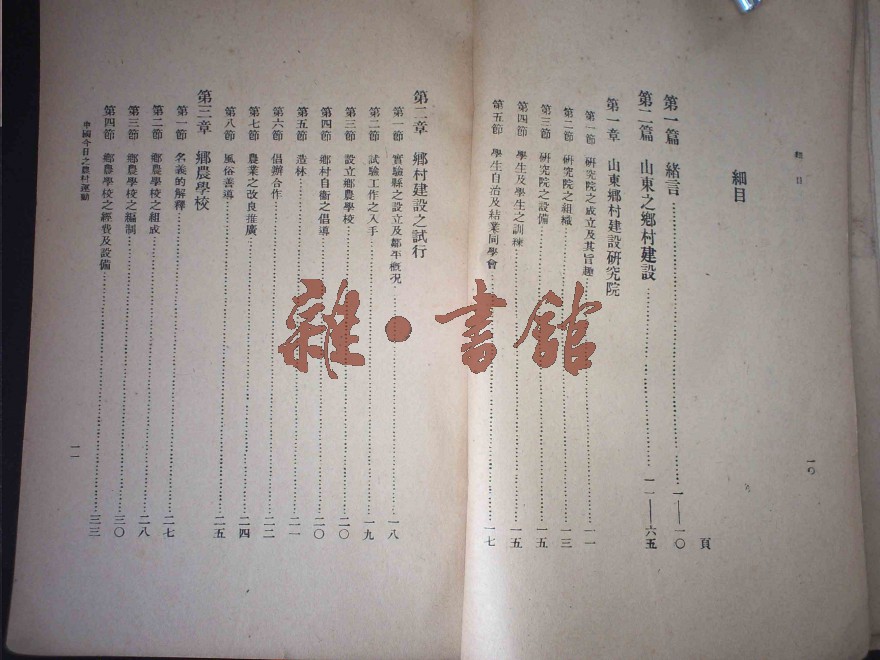 細目
一〇
細目
頁
第一篇 緒言……一——一〇
第二篇 山東之鄉村建設……一一——六五
第一章 山東鄉村建設研究院
第一節 研究院之成立及其旨趣……一一
第二節 研究院之組織……一三
第三節 研究院之設備……一五
第四節 學生及學生之訓練……一五
第五節 學生自治及結業同學會……一七
第二章 鄉村建設之試行
第一節 實驗縣之設立及鄒平概況……一八
第二節 試驗工作之入手……一九
第三節 設立鄉農學校……二〇
第四節 鄉村自衛之倡導……二〇
第五節 造林……二一
第六節 倡辦合作……二二
第七節 農業之改良推廣……二四
第八節 風俗善導……二五
第三章 鄉農學校
第一節 名義的解釋……二七
第二節 鄉農學校之組成……二八
第三節 鄉農學校之編制……三〇
第四節 鄉農學校之經費及設備……三三
中國今日之農村運動
一一
雜·書館